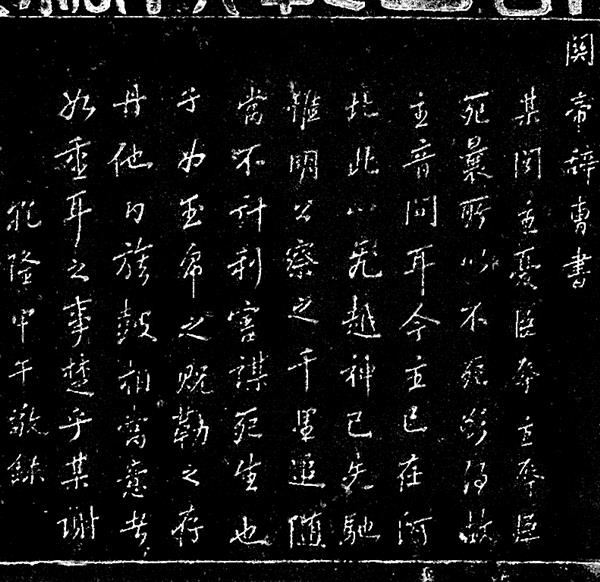 關帝辭曹書
某聞主憂臣辱主辱臣
死曩所以不死欲得故
主音問耳今主已在河
北此心飛越神已先馳
惟明公察之千里追隨
當不計利害謀死生也
子女玉帛之貺勒之寸
丹他日旗鼓相當意者
如重耳之事楚乎某謝
乾隆甲午敬錄